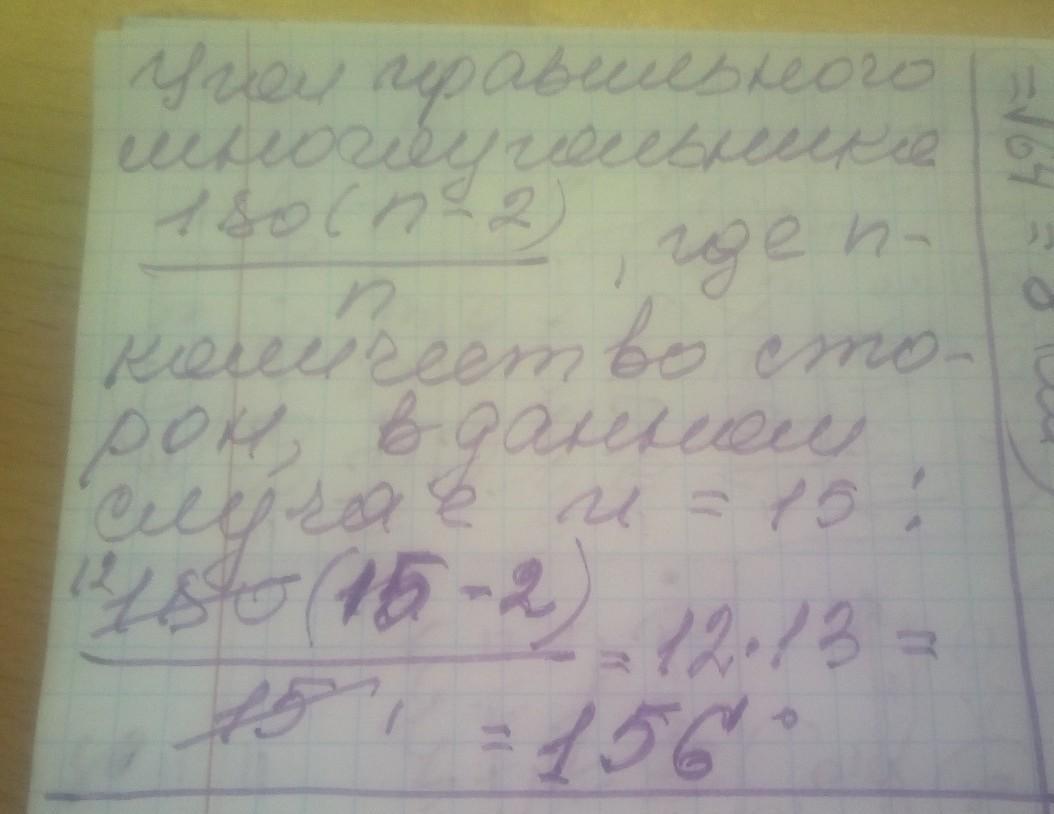 Угол правильного
многоугольника
180(n-2)
n
, где n-
количество сто-
рон, в данном
случае n = 15:
12 180(15-2)
15 1
= 12·13 =
= 156°
= √64 = 8